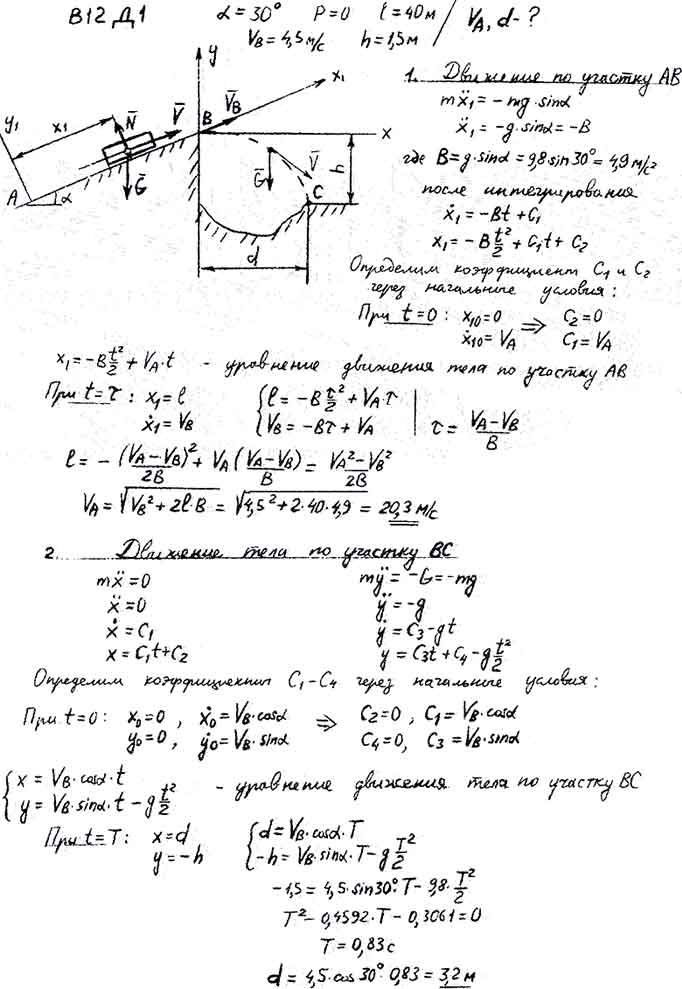 В12 Д1 α=30° P=0 l=40м / VA, d-?
VB=4,5 м/с h=1,5м
y
x₁
V̄B
B
x
y₁
x₁
N̄
V̄
A
α
Ḡ
Ḡ
V̄
C
h
d
1. Движение по участку АВ
mẍ₁=-mg·sinα
ẍ₁=-g·sinα=-B
где B=g·sinα=9,8sin30°=4,9 м/с²
после интегрирования
ẋ₁=-Bt+C₁
x₁=-B t²/2+C₁t+C₂
Определим коэффициент C₁ и C₂
через начальные условия:
При t=0: x₁₀=0 ⇒ C₂=0
ẋ₁₀=VA C₁=VA
x₁=-B t²/2+VA·t - уравнение движения тела по участку АВ
При t=τ: x₁=l { l=-B τ²/2+VA·τ
ẋ₁=VB VB=-Bτ+VA | τ=(VA-VB)/B
l=-(VA-VB)²/2B+VA(VA-VB)/B=(VA²-VB²)/2B
VA=√(VB²+2l·B)=√(4,5²+2·40·4,9)=20,3 м/с
2. Движение тела по участку ВС
mẍ=0 mÿ=-G=-mg
ẍ=0 ÿ=-g
ẋ=C₁ ẏ=C₃-gt
x=C₁t+C₂ y=C₃t+C₄-g t²/2
Определим коэффициенты C₁-C₄ через начальные условия:
При t=0: x₀=0, ẋ₀=VB·cosα ⇒ C₂=0, C₁=VB·cosα
y₀=0, ẏ₀=VB·sinα C₄=0, C₃=VB·sinα
{ x=VB·cosα·t - уравнение движения тела по участку ВС
y=VB·sinα·t-g t²/2
При t=T: x=d { d=VB·cosα·T
y=-h -h=VB·sinα·T-g T²/2
-1,5=4,5·sin30°·T-9,8·T²/2
T²-0,4592·T-0,3061=0
T=0,83с
d=4,5·cos30°·0,83=3,2м